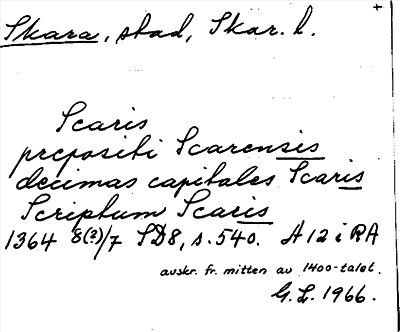 Skara, stad, Skar. l. +
Scaris
prepositi Scarensis
decimas capitales Scaris
Scriptum Scaris
1364 8(?)/7 SD8, s. 540. A 12 i RA
avskr. fr. mitten av 1400-talet.
G. L. 1966.